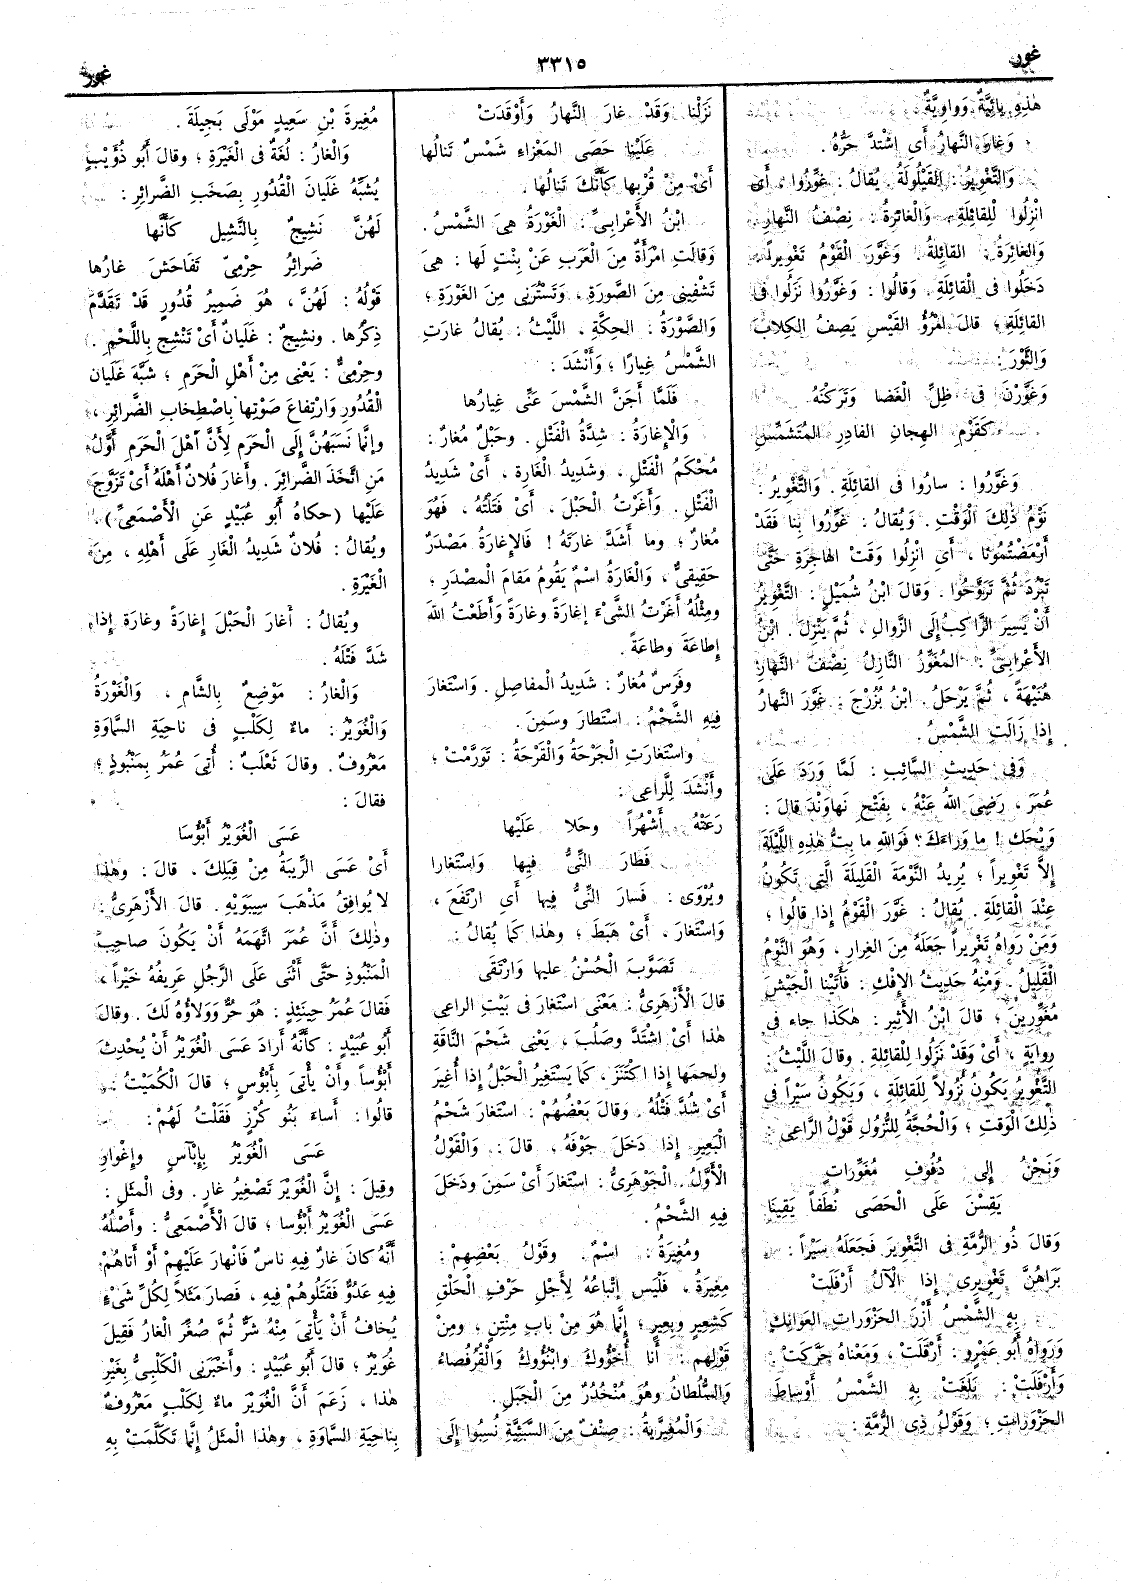 غور
٣٣١٥
غور
هٰذِهِ يائِيَّةٌ وَواوِيَّةٌ .
وَغارَ النَّهارُ أَىِ اشْتَدَّ حَرُّهُ .
وَالتَّغْوِيرُ : الْقَيْلُولَةُ يُقالُ : غَوِّرُوا ، أَىِ
انْزِلُوا لِلْقائِلَةِ . وَالْغائِرَةُ : نِصْفُ النَّهارِ .
وَالْغائِرَةُ : الْقائِلَةُ . وَغَوَّرَ الْقَوْمُ تَغْوِيراً :
دَخَلُوا فى الْقائِلَةِ . وَقالُوا : وَغَوَّرُوا نَزَلُوا فى
الْقائِلَةِ ؛ قالَ امْرُؤُ الْقَيْسِ يَصِفُ الْكِلابَ
وَالثَّوْرَ :
وَغَوَّرْنَ فى ظِلِّ الْغَضا وَتَرَكْنَهُ
كَقَرْمِ الْهِجانِ الْفادِرِ الْمُتَشَمِّسِ
وَغَوَّرُوا : سارُوا فى الْقائِلَةِ . وَالتَّغْوِيرُ :
نَوْمُ ذٰلِكَ الْوَقْتِ . وَيُقالُ : غَوِّرُوا بِنا فَقَدْ
أَرْمَضْتُمُونا ، أَىِ انْزِلُوا وَقْتَ الْهاجِرَةِ حَتَّى
تَبْرُدَ ثُمَّ تَرَوَّحُوا . وَقالَ ابْنُ شُمَيْلٍ : التَّغْوِيرُ
أَنْ يَسِيرَ الرَّاكِبُ إِلَى الزَّوالِ ، ثُمَّ يَنْزِلَ . ابْنُ
الأَعْرابِىِّ : الْمُغَوِّرُ النَّازِلُ نِصْفَ النَّهارِ
هُنَيْهَةً ، ثُمَّ يَرْحَلُ . ابْنُ بُزُرْجَ : غَوَّرَ النَّهارُ
إِذا زالَتِ الشَّمْسُ .
وَفى حَدِيثِ السَّائِبِ : لَمَّا وَرَدَ عَلَى
عُمَرَ ، رَضِىَ اللهُ عَنْهُ ، بِفَتْحِ نَهاوَنْدَ قالَ :
وَيْحَكَ ! ما وَراءَكَ ؟ فَوَاللهِ ما بِتُّ هٰذِهِ اللَّيْلَةَ
إِلَّا تَغْوِيراً ؛ يُرِيدُ النَّوْمَةَ الْقَلِيلَةَ الَّتِى تَكُونُ
عِنْدَ الْقائِلَةِ . يُقالُ : غَوَّرَ الْقَوْمُ إِذا قالُوا ؛
وَمَنْ رَواهُ تَغْرِيراً جَعَلَهُ مِنَ الْغِرارِ ، وَهُوَ النَّوْمُ
الْقَلِيلُ . وَمِنْهُ حَدِيثُ الإِفْكِ : فَأَتَيْنا الْجَيْشَ
مُغَوِّرِينَ ؛ قالَ ابْنُ الأَثِيرِ : هٰكَذا جاءَ فى
رِوايَةٍ ، أَىْ وَقَدْ نَزَلُوا لِلْقائِلَةِ . وَقالَ اللَّيْثُ :
التَّغْوِيرُ يَكُونُ نُزُولاً لِلْقائِلَةِ ، وَيَكُونُ سَيْراً فى
ذٰلِكَ الْوَقْتِ ؛ وَالْحُجَّةُ لِلنُّزُولِ قَوْلُ الرَّاعِى :
وَنَحْنُ إِلَى دُفُوفِ مُغَوِّراتٍ
يَقِسْنَ عَلَى الْحَصَى نُطَفاً يَقِينا
وَقالَ ذُو الرُّمَّةِ فى التَّغْوِيرِ فَجَعَلَهُ سَيْراً :
بَراهُنَّ تَغْوِيرِى إِذا الْآلُ أَرْقَلَتْ
بِهِ الشَّمْسُ أُزْرَ الْحَزْوَراتِ الْعَوانِكِ
وَرَواهُ أَبُو عَمْرٍو : أَرْقَلَتْ ، وَمَعْناهُ حَرَّكَتْ .
وَأَرْفَلَتْ : بَلَغَتْ بِهِ الشَّمْسُ أَوْساطَ
الْحَزْوَراتِ ؛ وَقَوْلُ ذِى الرُّمَّةِ :
نَزَلْنا وَقَدْ غارَ النَّهارُ وَأَوْقَدَتْ
عَلَيْنا حَصَى الْمَعْزاءِ شَمْسٌ تَنالُها
أَىْ مِنْ قُرْبِها كَأَنَّكَ تَنالُها .
ابْنُ الأَعْرابِىِّ : الْغَوْرَةُ هِىَ الشَّمْسُ .
وَقالَتِ امْرَأَةٌ مِنَ الْعَرَبِ عَنْ بِنْتٍ لَها : هِىَ
تَشْفِينِى مِنَ الصَّوْرَةِ ، وَتَسْتُرُنِى مِنَ الْغَوْرَةِ ؛
وَالصَّوْرَةُ : الْحِكَّةِ . اللَّيْثُ : يُقالُ غارَتِ
الشَّمْسُ غِيارًا ؛ وَأَنْشَدَ :
فَلَمَّا أَجَنَّ الشَّمْسَ عَنِّى غِيارُها
وَالإِغارَةُ : شِدَّةُ الْفَتْلِ . وَحَبْلٌ مُغارٌ :
مُحْكَمُ الْفَتْلِ ، وَشَدِيدُ الْغارَةِ ، أَىْ شَدِيدُ
الْفَتْلِ . وَأَغَرْتُ الْحَبْلَ ، أَىْ فَتَلْتُهُ ، فَهُوَ
مُغارٌ ؛ وما أَشَدَّ غارَتَهُ ! فَالإِغارَةُ مَصْدَرٌ
حَقِيقِىٌّ ، وَالْغارَةُ اسْمٌ يَقُومُ مَقامَ الْمَصْدَرِ ؛
وَمِثْلُهُ أَغَرْتُ الشَّىْءَ إِغارَةً وَغارَةً وَأَطَعْتُ اللهَ
إِطاعَةً وَطاعَةً .
وَفَرَسٌ مُغارٌ : شَدِيدُ الْمَفاصِلِ . وَاسْتَغارَ
فِيهِ الشَّحْمُ : اسْتَطارَ وَسَمِنَ .
وَاسْتَغارَتِ الْجَرْحَةُ وَالْقَرْحَةُ : تَوَرَّمَتْ ؛
وَأَنْشَدَ لِلرَّاعِى :
رَعَتْهُ أَشْهُراً وَحَلا عَلَيْها
فَطارَ النَّىُّ فِيها وَاسْتَغارا
وَيُرْوَى : فَسارَ النَّىُّ فِيها أَىِ ارْتَفَعَ ،
وَاسْتَغارَ ، أَىْ هَبَطَ ؛ وَهٰذا كَما يُقالُ :
تَصَوَّبَ الْحُسْنُ عَلَيها وَارْتَقَى
قالَ الأَزْهَرِىُّ : مَعْنَى اسْتَغارَ فى بَيْتِ الراعى
هٰذا أَىْ اشْتَدَّ وَصَلُبَ ، يَعْنِى شَحْمَ النَّاقَةِ
وَلحمَها إِذا اكْتَنَزَ ، كَما يَسْتَغِيرُ الْحَبْلُ إِذا أُغِيرَ
أَىْ شُدَّ فَتْلُهُ . وَقالَ بَعْضُهُمْ : اسْتَغارَ شَحْمُ
الْبَعِيرِ إِذا دَخَلَ جَوْفَهُ ، قالَ : وَالْقَوْلُ
الأَوَّلُ . الْجَوْهَرِىُّ : اسْتَغارَ أَىْ سَمِنَ وَدَخَلَ
فِيهِ الشَّحْمُ .
وَمُغِيرَةُ : اسْمٌ . وَقَوْلُ بَعْضِهِمْ :
مِغِيرَةُ ، فَلَيْسَ إِتْباعُهُ لِأَجْلِ حَرْفِ الْحَلْقِ
كَشِعِيرٍ وبِعِيرٍ ؛ إِنَّما هُوَ مِنْ بابِ مِنْتِنٍ ؛ وَمِنْ
قَوْلِهِم : أَنا أُخْؤُوكَ وابْنُؤُوكَ وَالْقُرُفُصاءُ
وَالسُّلُطانُ وَهُوَ مُنْحُدُرٌ مِنَ الْجَبَلِ .
وَالْمُغِيرِيَّةُ : صِنْفٌ مِنَ السَّبَئِيَّةِ نُسِبُوا إِلَى
مُغِيرَةَ بْنِ سَعِيدٍ مَوْلَى بَجِيلَةَ .
وَالْغارُ : لُغَةٌ فى الْغَيْرَةِ ؛ وَقالَ أَبُو ذُؤَيْبٍ
يُشَبِّهُ غَلَيانَ الْقُدُورِ بِصَخَبِ الضَّرائِرِ :
لَهُنَّ نَشِيجٌ بِالنَّشِيلِ كَأَنَّها
ضَرائِرُ حِرْمِىٍّ تَفاحَشَ غارُها
قَوْلُهُ : لَهُنَّ ، هُوَ ضَمِيرُ قُدُورٍ قَدْ تَقَدَّمَ
ذِكْرُها . ونَشِيجٌ : غَلَيانٌ أَىْ تَنْشِجُ بِاللَّحْمِ .
وَحِرْمِىٌّ : يَعْنِى مِنْ أَهْلِ الْحَرَمِ ؛ شَبَّهَ غَلَيانَ
الْقُدُورِ وَارْتِفاعَ صَوْتِها بِاصْطِخابِ الضَّرائِرِ ،
وَإِنَّما نَسَبَهُنَّ إِلَى الْحَرَمِ لِأَنَّ أَهْلَ الْحَرَمِ أَوَّلُ
مَنِ اتَّخَذَ الضَّرائِرَ . وَأَغارَ فُلانٌ أَهْلَهُ أَىْ تَزَوَّجَ
عَلَيْها (حكاهُ أَبُو عُبَيْدٍ عَنِ الأَصْمَعِىِّ) .
ويُقالُ : فُلانٌ شَدِيدُ الْغارِ عَلَى أَهْلِهِ ، مِنَ
الْغَيْرَةِ .
ويُقالُ : أَغارَ الْحَبْلَ إِغارَةً وَغارَةً إِذا
شَدَّ فَتْلَهُ .
وَالْغارُ : مَوْضِعٌ بِالشَّامِ ، وَالْغَوْرَةُ
وَالْغُوَيْرُ : ماءٌ لِكَلْبٍ فى ناحِيَةِ السَّماوَةِ
مَعْرُوفٌ . وَقالَ ثَعْلَبٌ : أُتِىَ عُمَرُ بِمَنْبُوذٍ ؛
فَقالَ :
عَسَى الْغُوَيْرُ أَبْؤُسَا
أَىْ عَسَى الرِّيبَةُ مِنْ قِبَلِكَ ، قالَ : وَهٰذا
لا يُوافِقُ مَذْهَبَ سِيبَوَيْهِ . قالَ الأَزْهَرِىُّ :
وَذٰلِكَ أَنَّ عُمَرَ اتَّهَمَهُ أَنْ يَكُونَ صاحِبَ
الْمَنْبُوذِ حَتَّى أَثْنَى عَلَى الرَّجُلِ عَرِيفُهُ خَيْراً ،
فَقالَ عُمَرُ حِينَئِذٍ : هُوَ حُرٌّ وَوَلاؤُهُ لَكَ . وَقالَ
أَبُو عُبَيْدٍ : كَأَنَّهُ أَرادَ عَسَى الْغُوَيْرُ أَنْ يُحْدِثَ
أَبْؤُساً وَأَنْ يَأْتِىَ بِأَبْؤُسٍ ؛ قالَ الْكُمَيْتُ :
قالُوا : أَساءَ بَنُو كُرْزٍ فَقُلْتُ لَهُمْ :
عَسَى الْغُوَيْرُ بِإِبْآسٍ وَإِغْوارِ
وَقِيلَ : إِنَّ الْغُوَيْرَ تَصْغِيرُ غارٍ . وَفى الْمَثَلِ :
عَسَى الْغُوَيْرُ أَبْؤُسا ؛ قالَ الأَصْمَعِىُّ : وَأَصْلُهُ
أَنَّهُ كانَ غارٌ فِيهِ ناسٌ فَانْهارَ عَلَيْهِمْ أَوْ أَتاهُمْ
فِيهِ عَدُوٌّ فَقَتَلُوهُمْ فِيهِ ، فَصارَ مَثَلاً لِكُلِّ شَىْءٍ
يُخافُ أَنْ يَأْتِىَ مِنْهُ شَرٌّ ثُمَّ صُغِّرَ الْغارُ فَقِيلَ
غُوَيْرٌ ؛ قالَ أَبُو عُبَيْدٍ : وَأَخْبَرَنِى الْكَلْبِىُّ بِغَيْرِ
هٰذا ، زَعَمَ أَنَّ الْغُوَيْرَ ماءٌ لِكَلْبٍ مَعْرُوفٌ
بِناحِيَةِ السَّماوَةِ ، وَهٰذا الْمَثَلُ إِنَّما تَكَلَّمَتْ بِهِ